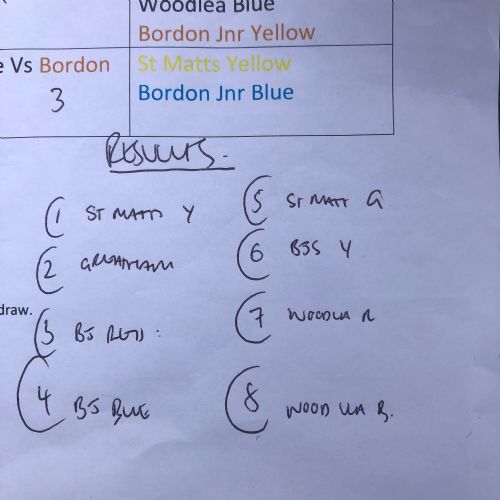 Woodlea Blue
Bordon Jnr Yellow
e Vs Bordon
St Matts Yellow
3
Bordon Jnr Blue
RESULTS.
1 ST MATTS Y
5 ST MATT G
2
6 BJS Y
draw.
3 BJ RED
7 WOODLEA R
4 BJ BLUE
8 WOODLEA B.